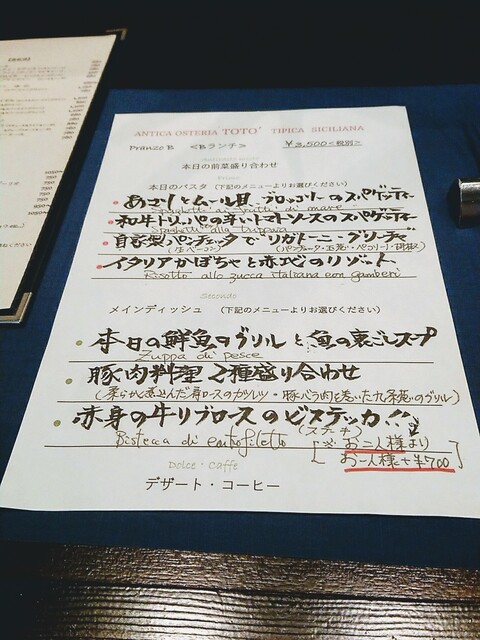 ANTICA OSTERIA TOTO' TIPICA SICILIANA
Pranzo B <Bランチ> ¥3,500<税別>
本日の前菜盛り合わせ
本日のパスタ (下記のメニューよりお選びください)
あさりとムール貝、ブロッコリーのスパゲッティー
Spaghetti ai frutti di mare
和牛トリッパの辛いトマトソースのスパゲッティー
Spaghetti alla trippa
自家製パンチェッタで"リガトーニ・グリーチャ"
(生ベーコン) (パンチェッタ・玉葱・ペコリーノ・胡椒)
イタリアかぼちゃと赤エビのリゾット
Risotto allo zucca italiana con gamberi
Secondo
メインディッシュ (下記のメニューよりお選びください)
本日の鮮魚のグリルと魚の裏ごしスープ
Zuppa di pesce
豚肉料理2種盛り合わせ
(柔らかく煮込んだ肩ロースのカツレツ・豚バラ肉を巻いた九条葱のグリル)
赤身の牛リブロースのビステッカ!!
(ステーキ)
Bistecca di entrofiletto
[※お二人様より
お一人様で+¥700]
Dolce・Caffe
デザート・コーヒー